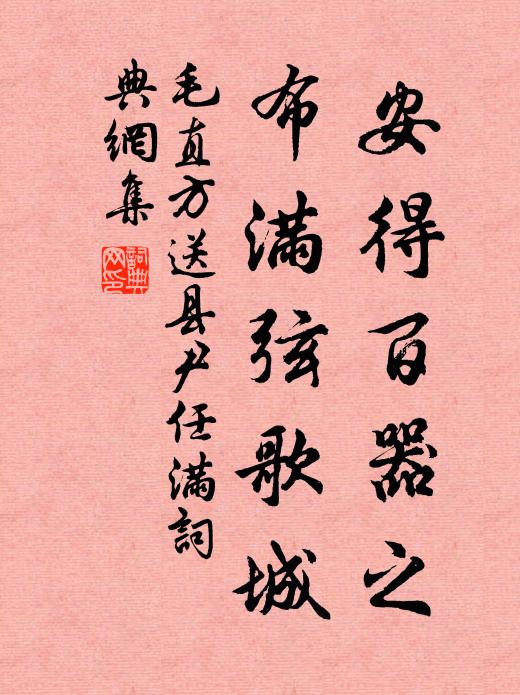 安得百器之
布满弦歌城
毛直方送县尹任满詞
典網集
詞典网印